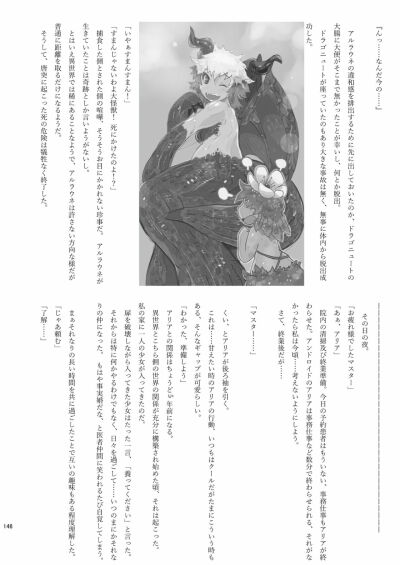 『んっ……なんだ今の……』
アルラウネの違和感を排出するために先に出しておいたのか、ドラゴニュートの
大腸に大便がそこまで無かったことが幸いし、何とか脱出。
ドラゴニュートが座っていたのもあり大きな事故は無く、無事に体内から脱出成
功した。
『いやぁすまんすまん！』
「すまんじゃないわよ大怪獣！ 死にかけたのよー？」
捕食した側とされた側の喧嘩、そうそうお目にかかれない珍事だ。アルラウネが
生きていたことは奇跡としか言いようがないし。
とはいえ異世界では稀にあることなようで、アルラウネは許さない方向な様だが
普通に距離を取るだけになるようだ。
そうして、唐突に起こった死の危険は犠牲なく終了した。
その日の夜。
『お疲れ様でしたマスター』
「あぁ、アリア」
院内の清掃及び終業準備。今日の予約患者はもういない、事務仕事もアリアが終
わらせた。アンドロイドのアリアは事務仕事など数分で終わらせられる、それがな
かったら私は今頃……考えないようにしよう。
さて、終業後だが……
『マスター……』
くい、とアリアが後ろ袖を引く。
これは……甘えたい時のアリアの行動、いつもはクールだがたまにこういう時も
ある、そんなギャップが可愛らしい。
「わかった、準備しよう」
アリアとの関係はちょうど5年前になる。
異世界とこちら側の世界の関係が充分に構築され始めた頃、それは起こった。
私の家に、一人の少女が入ってきたのだ。
扉を破壊しながら入ってきた少女はたった一言、「養ってください」と言った。
それからは特に何かやるわけでもなく、日々を過ごして……いつのまにかそれな
りの仲になった、もはや事実婚だな、と医者仲間に笑われるたび自覚してしまう。
まぁそれなりの長い時間を共に過ごしたことで互いの趣味もある程度理解した。
「じゃあ頼む」
『了解……』
146